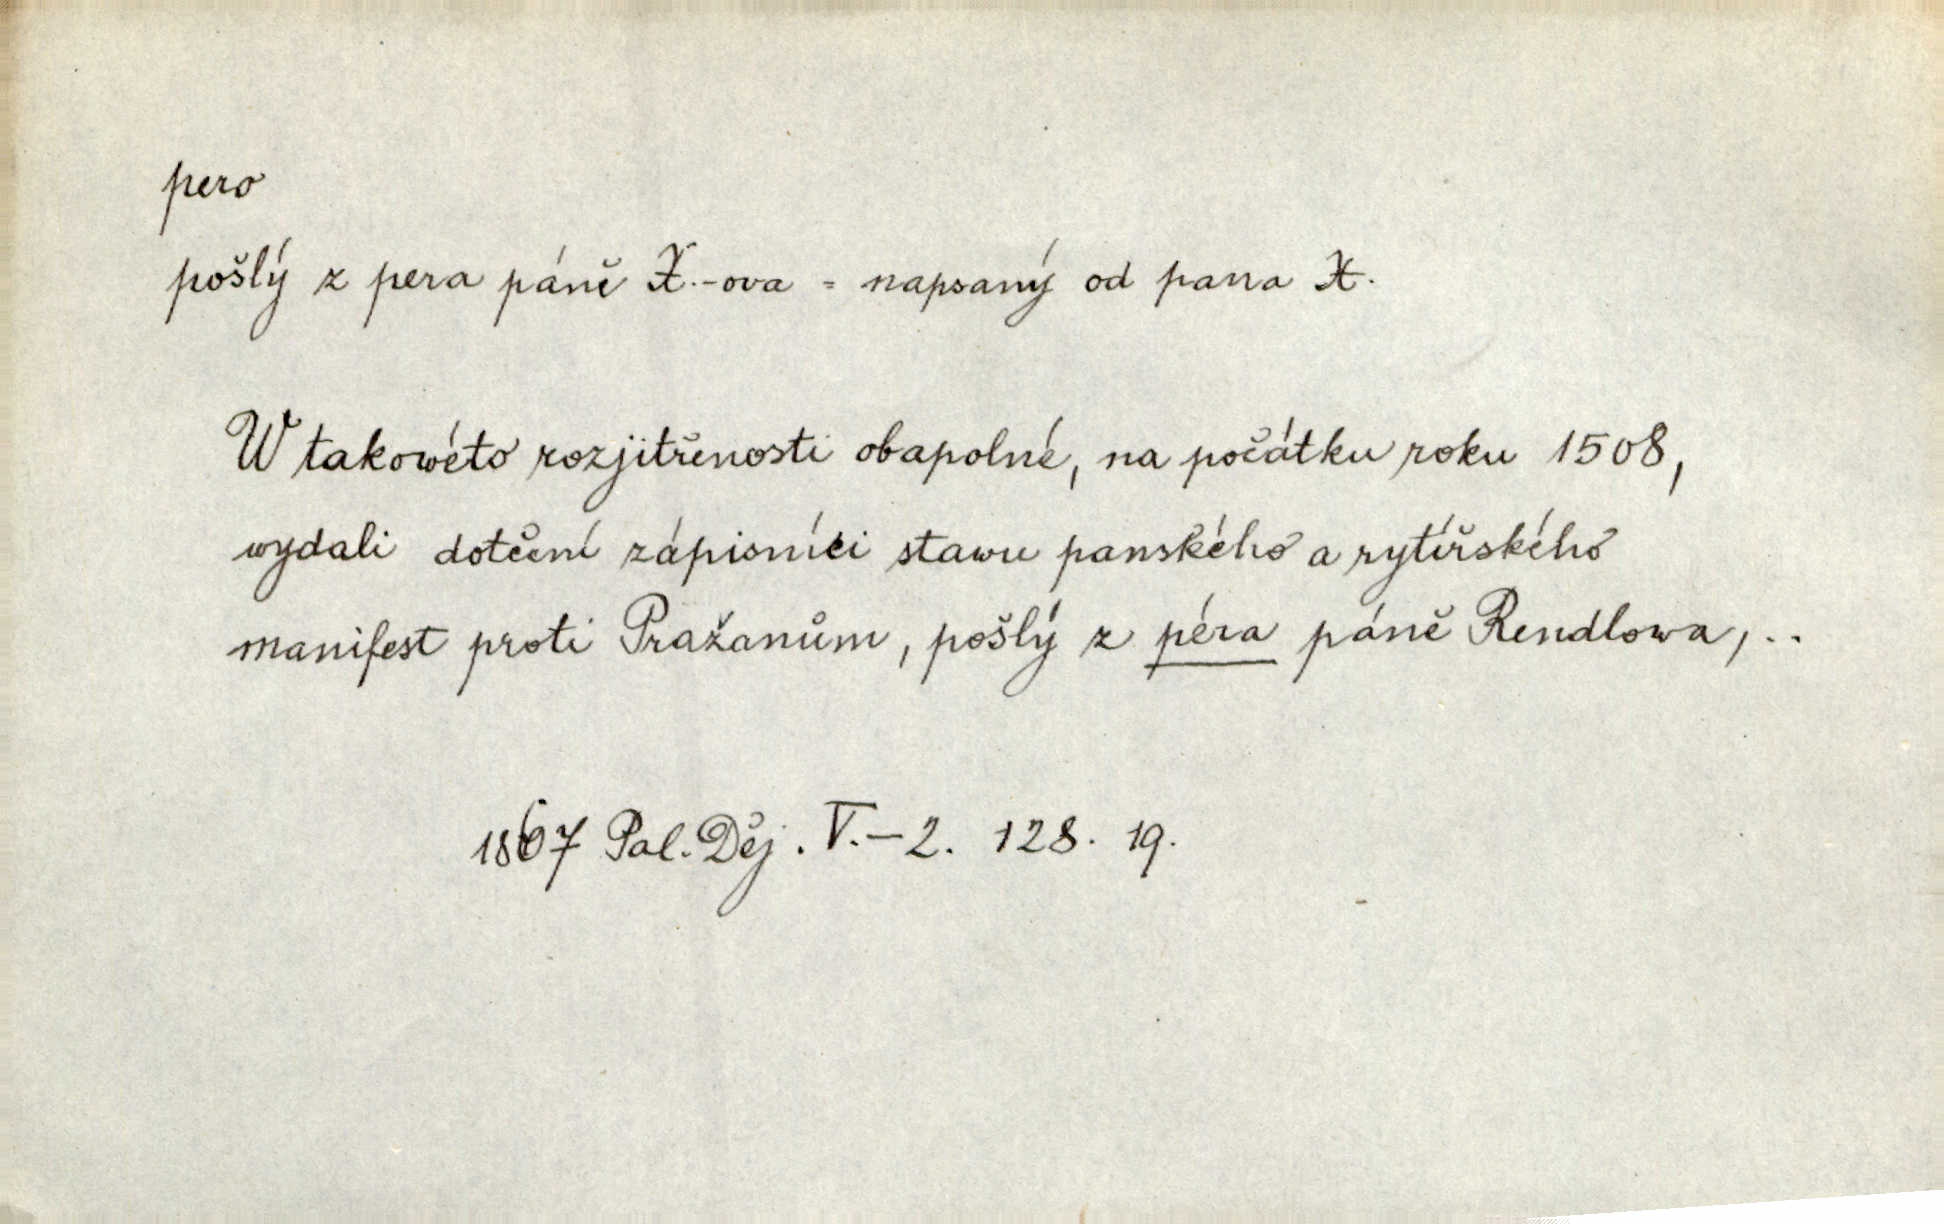 pero
pošlý z pera páně X.-ova = napsaný od pana X.
W takowéto rozjitřenosti obapolné, na počátku roku 1508,
wydali dotčení zápisníci stawu panského a rytířského
manifest proti Pražanům, pošlý z péra páně Rendlowa,..
1867 Pal. Děj. V.-2. 128. 19.